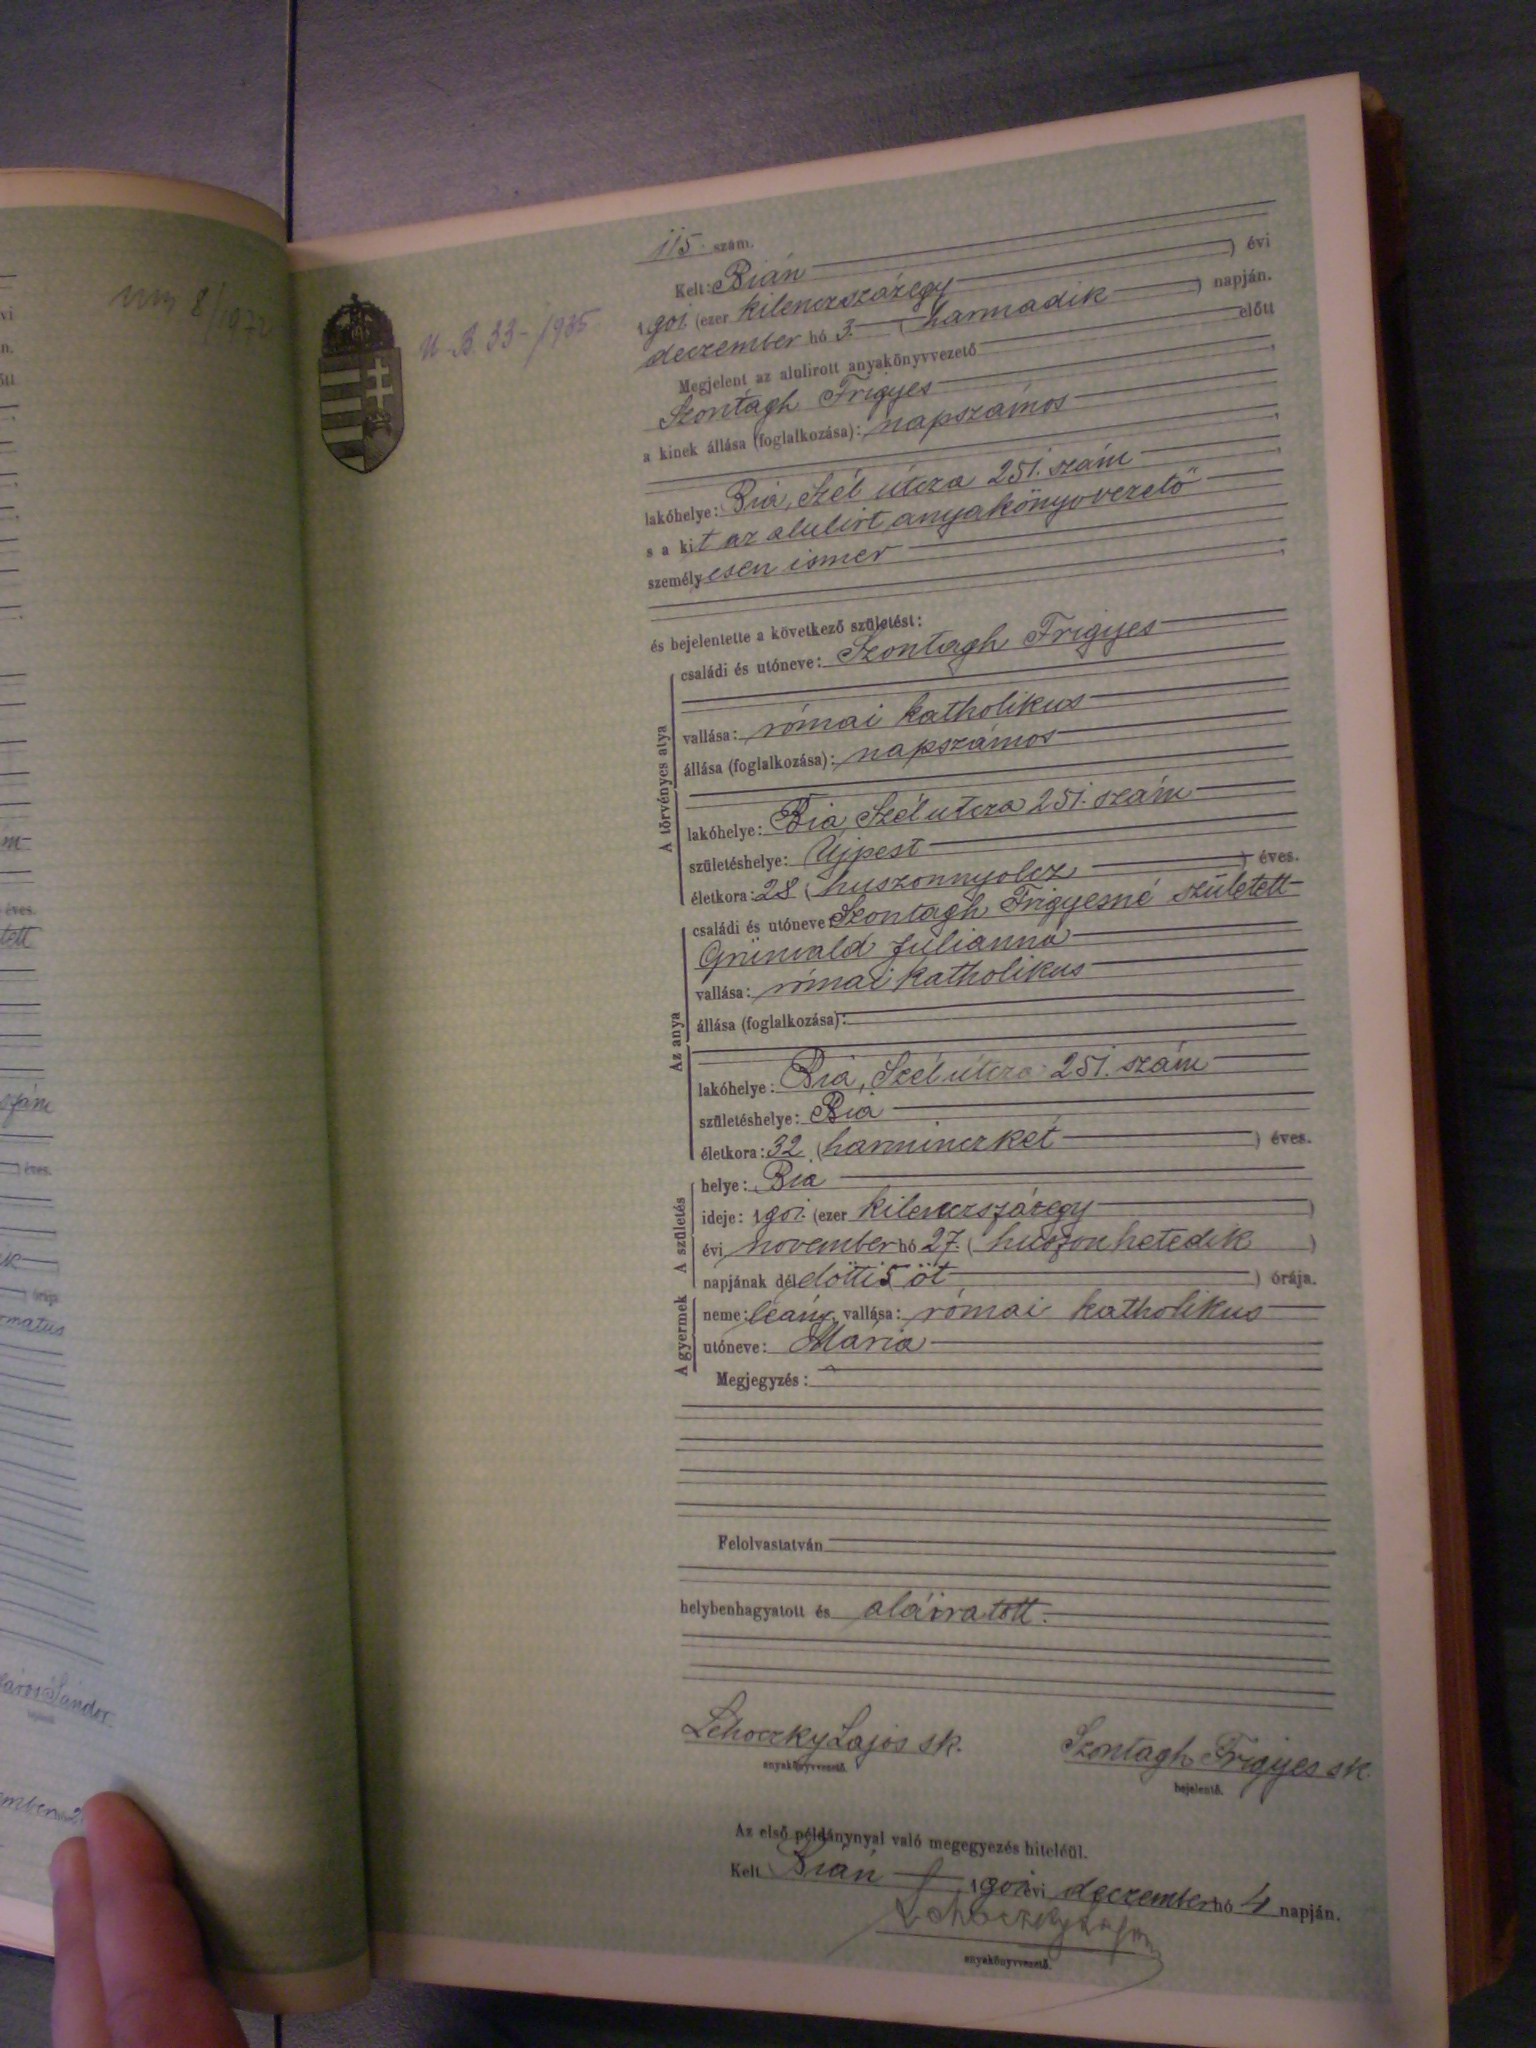 8/1972
U. B 33-/935
115. szám.
Kelt: Bián ) évi
1901. (ezer kilenczszázegy
deczember hó 3. ( harmadik ) napján.
Megjelent az alulirott anyakönyvvezető előtt
Szontágh Frigyes
a kinek állása (foglalkozása): napszámos
lakóhelye: Bia, Szél útcza 251. szám
s a kit az alulirt anyakönyvvezető
személyesen ismer
és bejelentette a következő születést:
A törvényes atya
családi és utóneve: Szontagh Frigyes
vallása: római katholikus
állása (foglalkozása): napszámos
lakóhelye: Bia, Szél utcza 251. szám
születéshelye: Ujpest
életkora: 28 ( huszonnyolcz ) éves.
Az anya
családi és utóneve: Szontagh Frigyesné született
Grünvald Julianna
vallása: római katholikus
állása (foglalkozása):
lakóhelye: Bia, Szél útcza 251. szám
születéshelye: Bia
életkora: 32 ( harminczkét ) éves.
A születés
helye: Bia
ideje: 1901. (ezer kilenczszázegy )
évi november hó 27. ( huszonhetedik )
napjának délelőtti 5 öt ) órája.
A gyermek
neme: leány, vallása: római katholikus
utóneve: Mária
Megjegyzés:
Felolvastatván
helybenhagyatott és aláiratott.
Lehoczky Lajos sk.
anyakönyvvezető.
Szontagh Frigyes sk.
bejelentő.
Az első példánynyal való megegyezés hiteléül.
Kelt Bián 1901 évi deczember hó 4 napján.
Lehoczky Lajos
anyakönyvvezető.